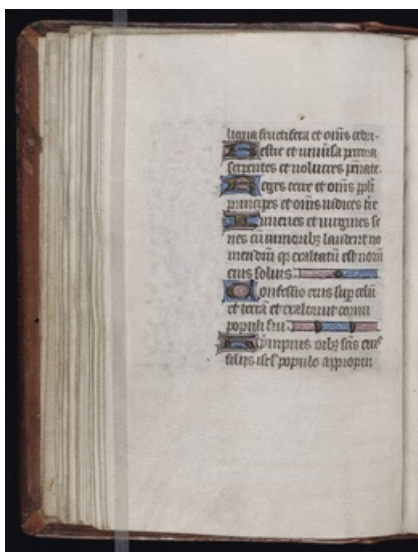 ligna fructifera et om̄s cedri.
Bestie et univ̄sa pecora
serpentes et volucres pennate.
Reges terre et om̄s ppl̄i
principes et om̄s iudices t̄re
Iuvenes et virgines se
nes cū iuniorib; laudent no
men dn̄i q̄ exaltatū est nom̄
eius solius.
Confessio eius sup celū
et terrā et exaltavit cornu
populi sui.
Hympnus omib; sc̄is eius
filiis isrl̄ populo appropin